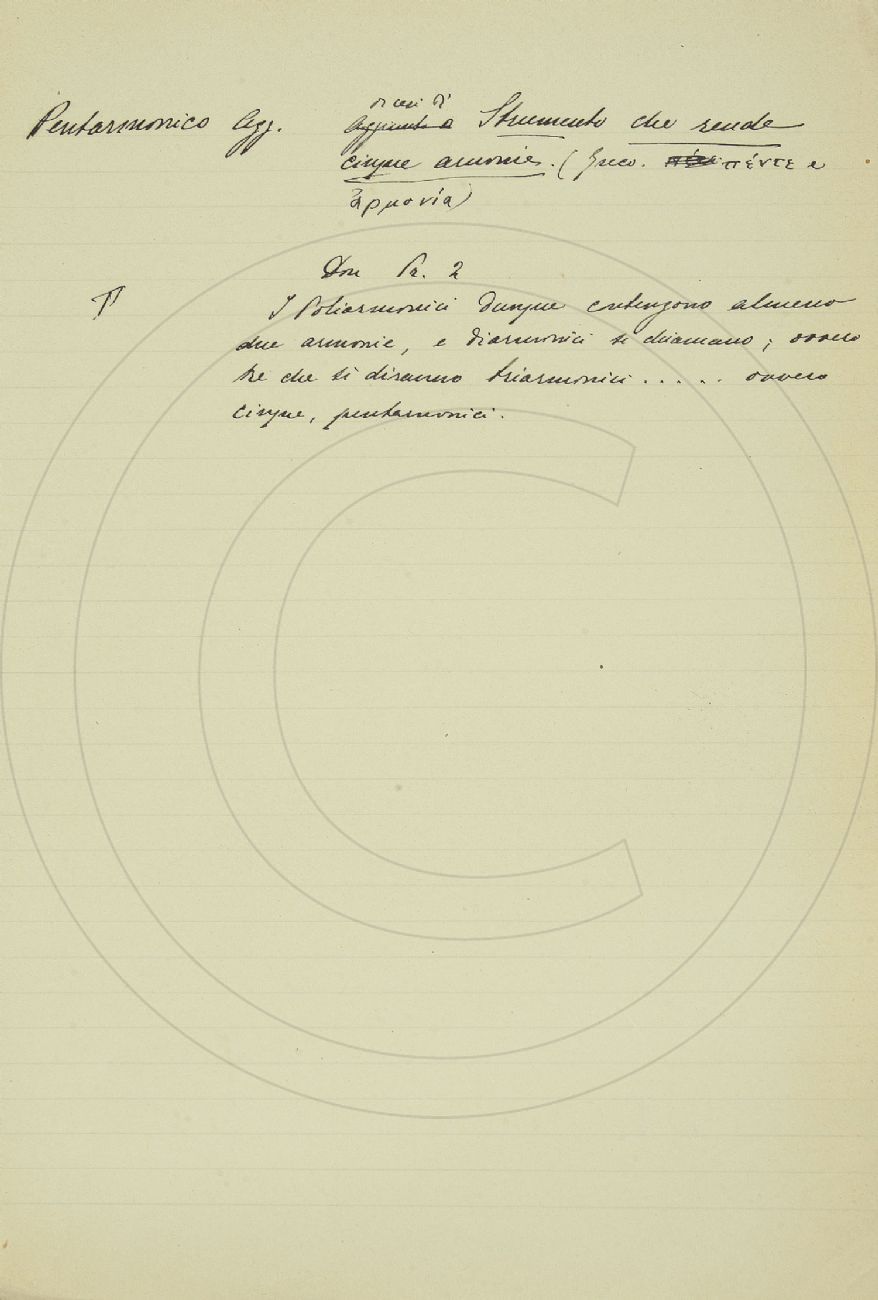 Pentarmonico Agg. Dicesi di Strumento che rende
cinque armonie. (Grec. πέντε e
ἁρμονία)
Don Pr. 2
I Poliarmonici dunque contengono almeno
due armonie, e diarmonici si chiamano; ovvero
tre che si diranno triarmonici ..... ovvero
cinque, pentarmonici.